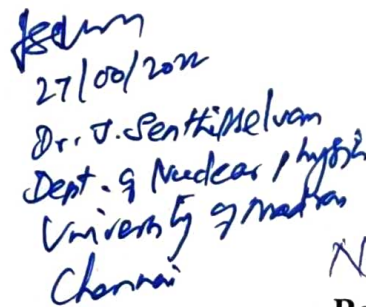 27/00/2022
Dr. J. Senthilselvan
Dept. of Nuclear Physics
University of Madras
Chennai